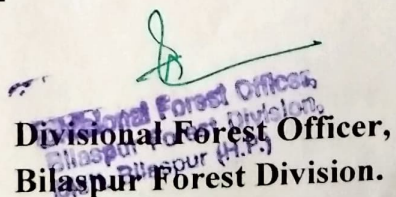 Divisional Forest Officer,
Bilaspur Forest Division,
Bilaspur (H.P.)
Divisional Forest Officer,
Bilaspur Forest Division.